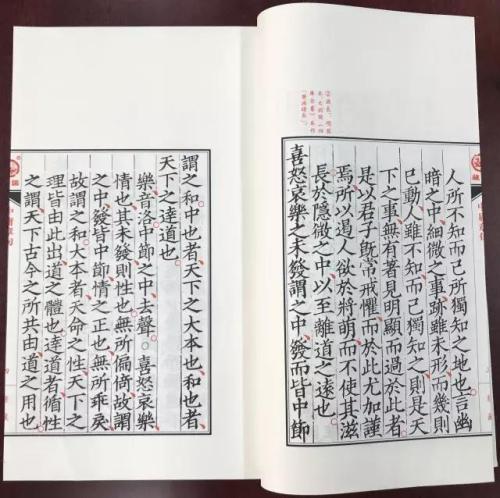 人所不知而己所獨知之地也言幽
暗之中細微之事跡雖未形而幾則
已動人雖不知而己獨知之則是天
下之事無有著見明顯而過於此者
是以君子既常戒懼而於此尤加謹
焉所以遏人欲於將萌而不使其滋
長於隱微之中以至離道之遠也
喜怒哀樂之未發謂之中發而皆中節
謂之和中也者天下之大本也和也者
天下之達道也
樂音洛中節之中去聲○喜怒哀樂
情也其未發則性也無所偏倚故謂
之中發皆中節情之正也無所乖戾
故謂之和大本者天命之性天下之
理皆由此出道之體也達道者循性
之謂天下古今之所共由道之用也
中庸章句
四